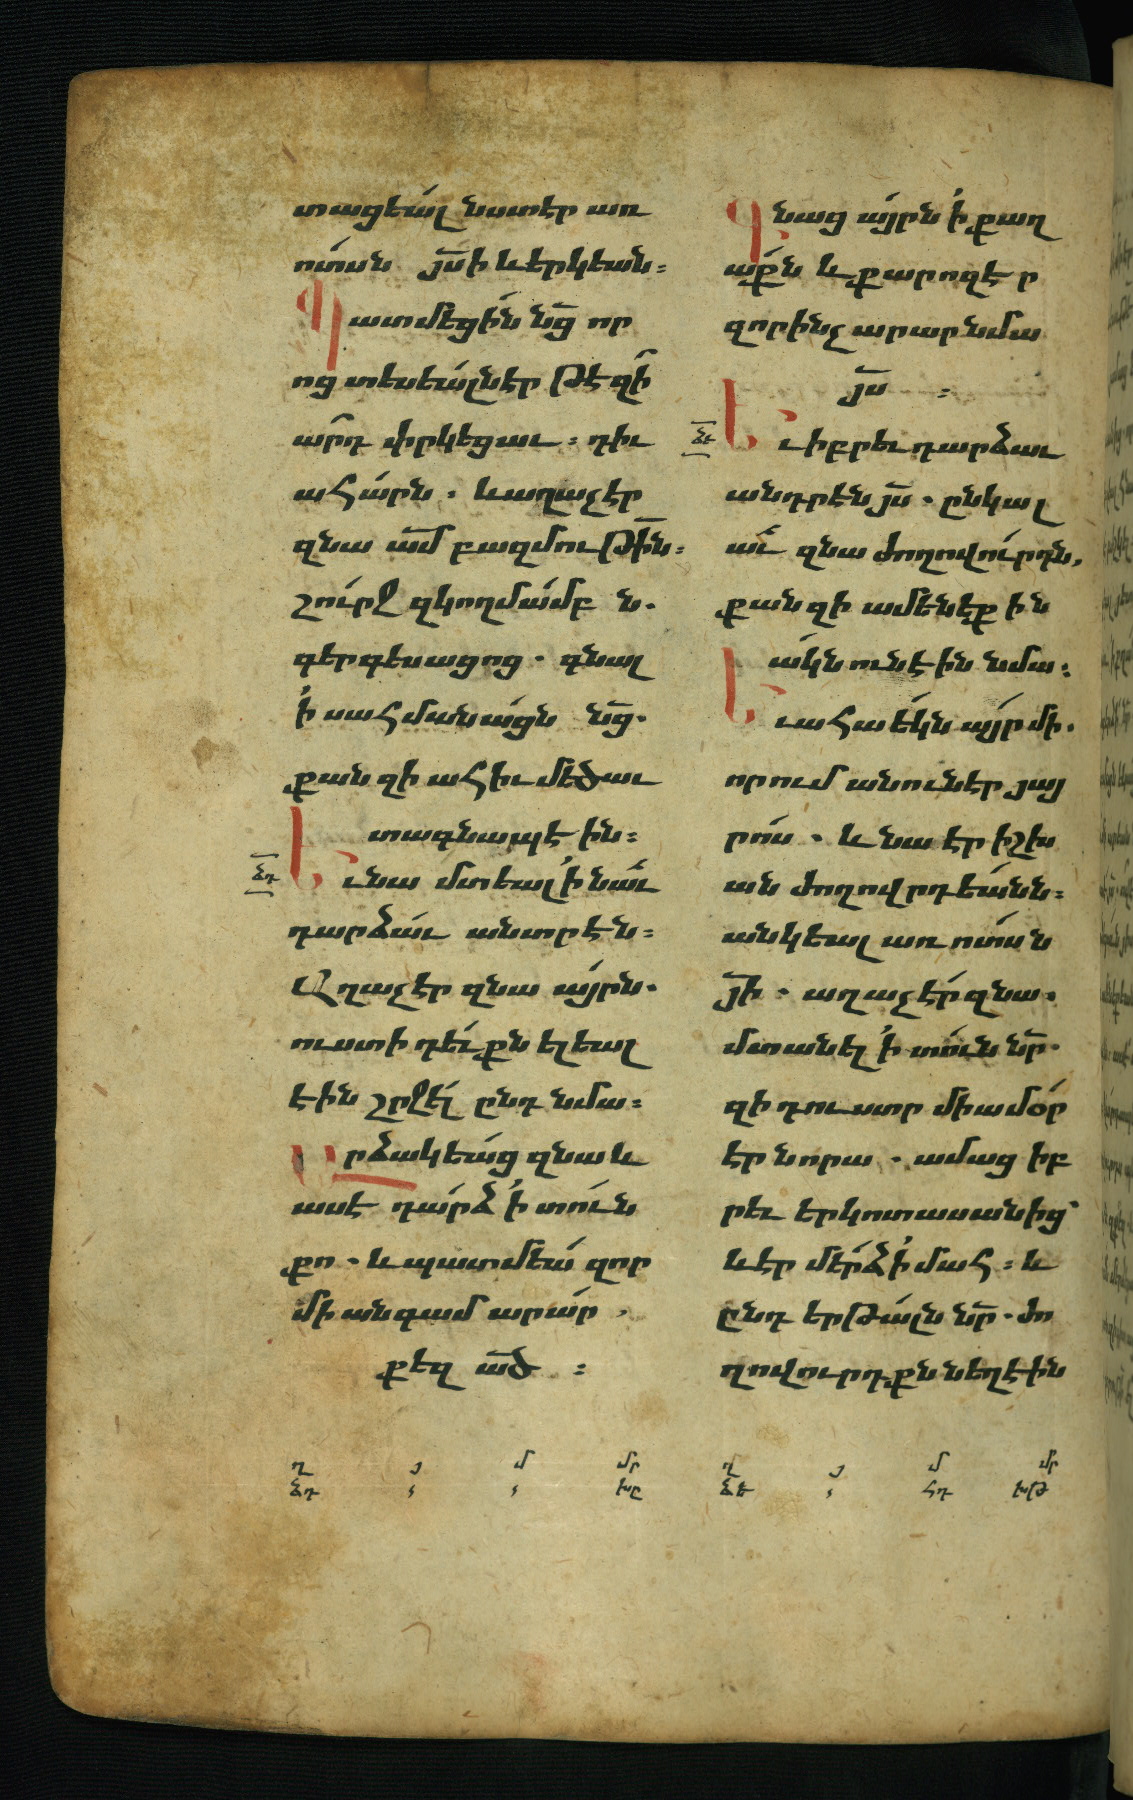 տացեալ նստէր առ
ոտսն յս̅ի և երկեան։
Պատմեցին նց̅ որ
ոց տեսեալ էր թէ զի̅
ար̅դ փրկեցաւ։ դիւ
ահարն. և աղաչէր
զնա ամ̅ բազմութի̅ն։
շուրջ զկողմամբ ն.
գերգեսացոց. գնալ
ի սահմանացն նց̅.
քանզի ահիւ մեծաւ
տագնապէին։
ՃԴ
Եւ նա մտեալ ի նաւ̅
դարձաւ անտրէն։
Աղաչէր զնա այրն.
ուստի դեւքն ելեալ
էին շրջել ընդ նմա։
Արձակեաց զնա և
ասէ դարձ ի տուն
քո. և պատմեա զոր
միանգամ արար
քեզ ած̅ ։
Գնաց այրն ի քաղ
աքն և քարոզէր
զորինչ արար նմա
յս̅ ։
ՃԵ
Եւ իբրեւ դարձաւ
անդրէն յս̅. ընկալ
աւ̅ զնա ժողովուրդն,
քանզի ամենեքին
ակն ունէին նմա։
Եւ ահա եկն այր մի.
որում անուն էր յայ
րոս. և նա էր իշխ
ան ժողովրդեանն։
անկեալ առ ոտսն
յի̅. աղաչէր զնա.
մտանել ի տուն նր̅.
զի դուստր միամօր
էր նորա. ամաց իբ
րեւ երկոտասանից՝
և էր մերձ ի մահ։ և
ընդ երթալն նր̅. ժո
ղովուրդքն նեղէին
ղ յ մ մր
ՃԴ , , ԽԸ
ղ յ մ մր
ՃԵ , ՀԴ ԽԹ